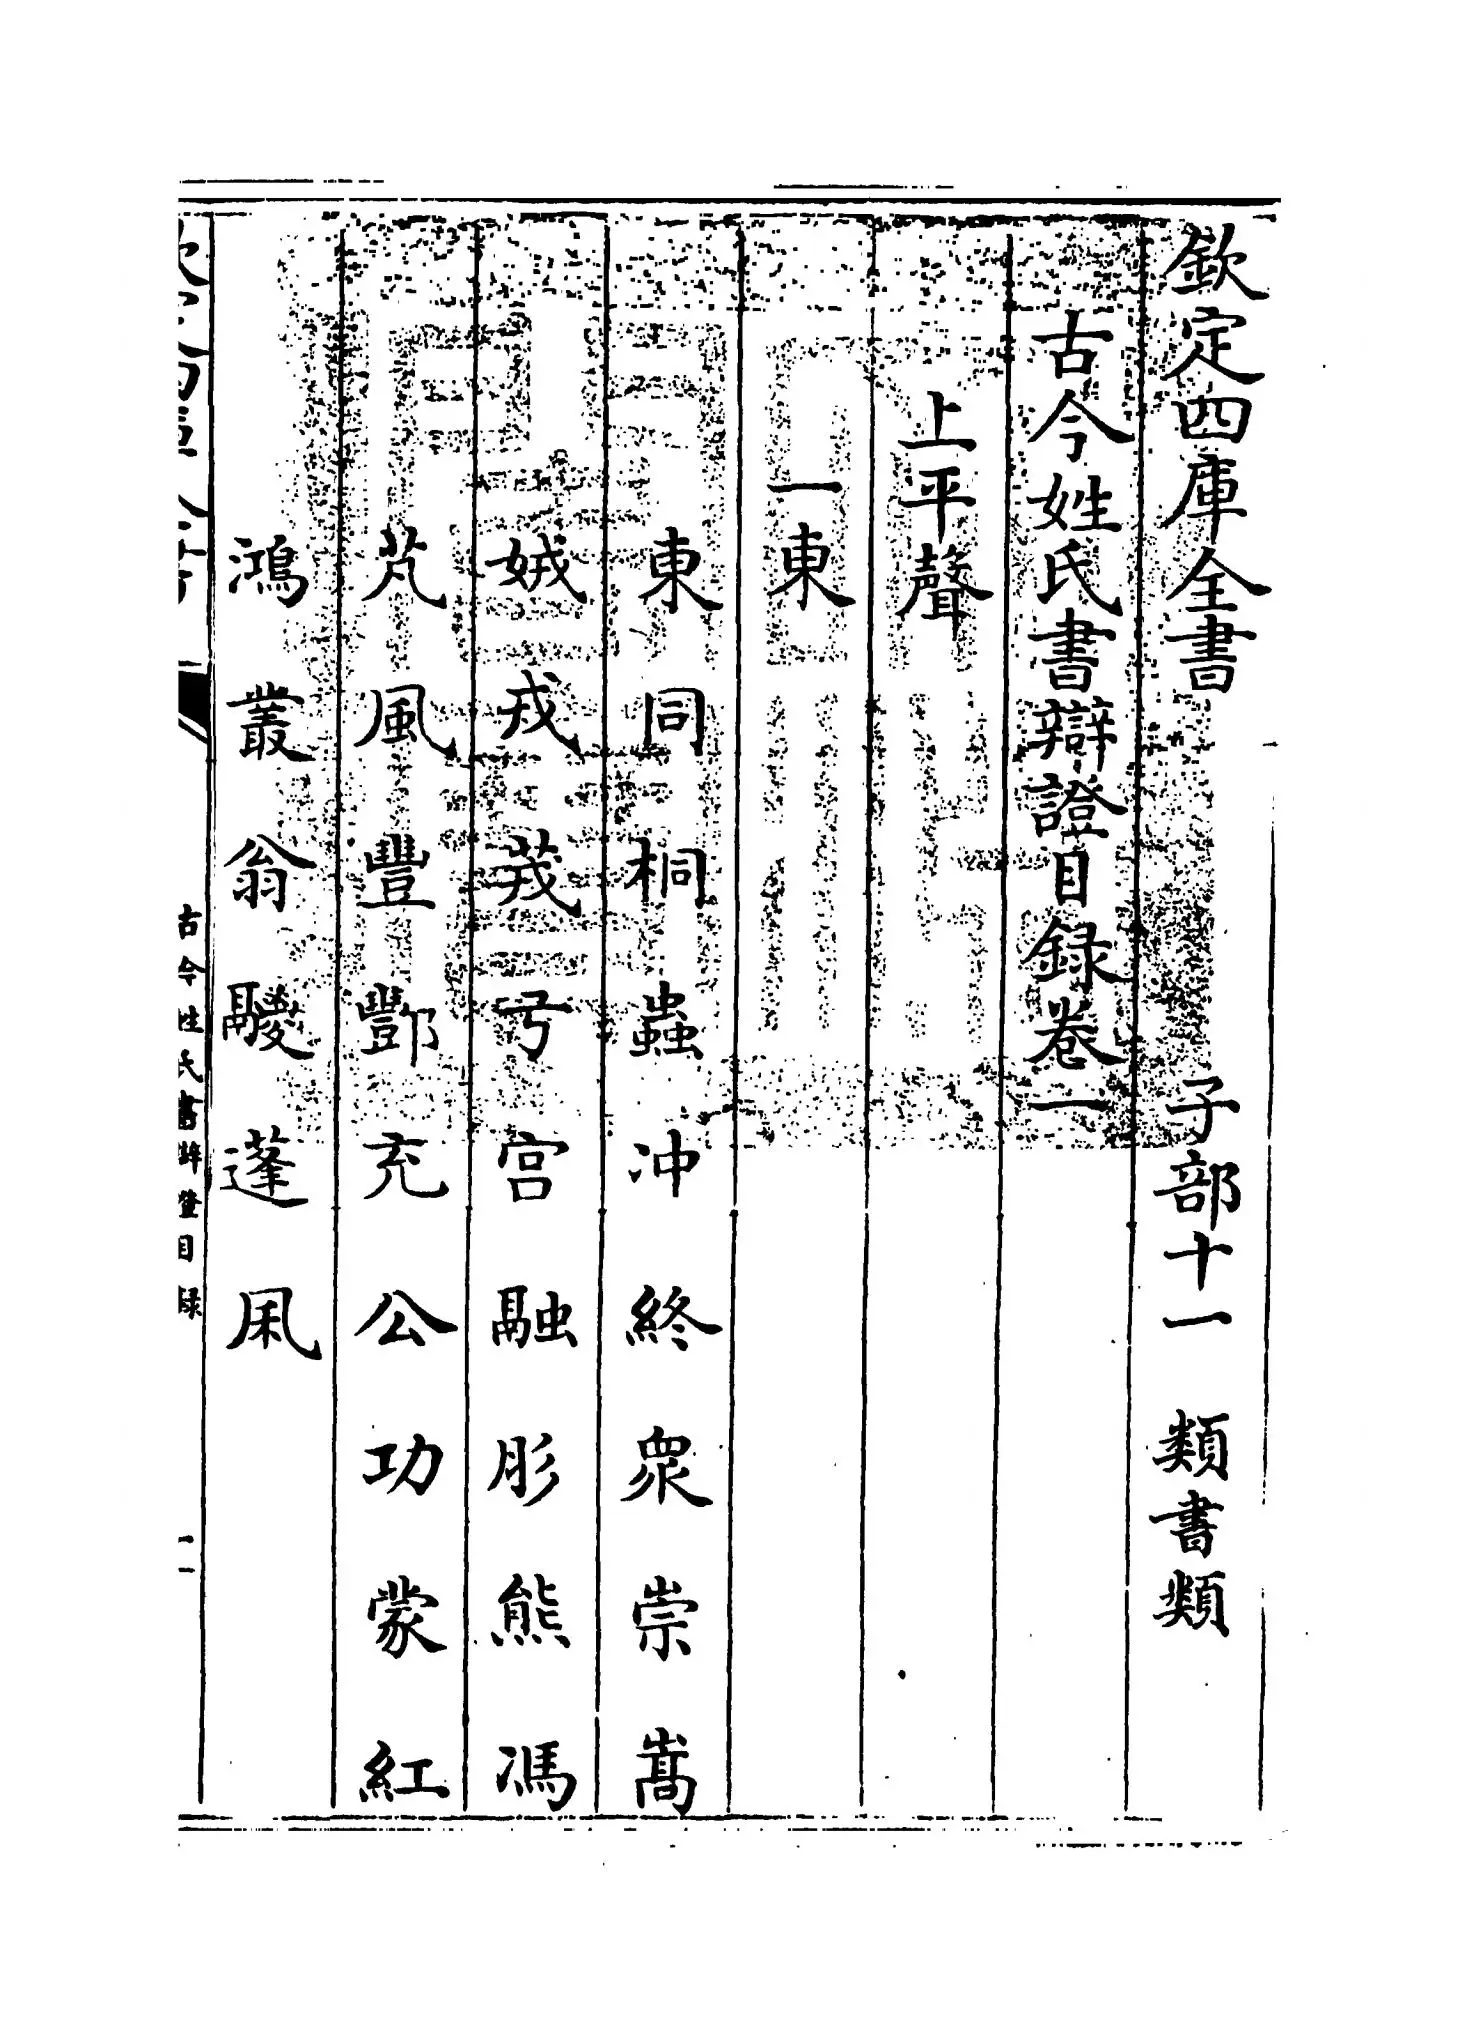 欽定四庫全書 子部十一 類書類
古今姓氏書辯證目録卷一
上平聲
一東
東 同 桐 蟲 冲 終 衆 崇 嵩
娀 戎 茙 弓 宫 融 肜 熊 馮
芃 風 豐 酆 充 公 功 蒙 紅
鴻 叢 翁 鬷 蓬
古今姓氏書辯證目録